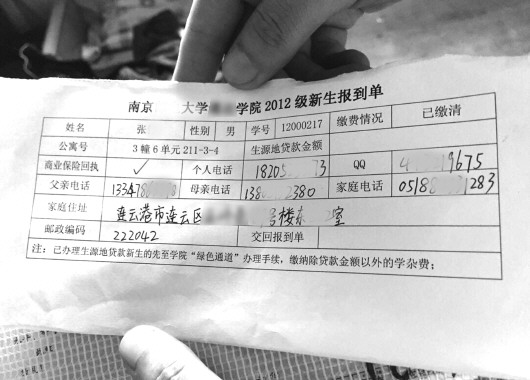 南京 大学 学院2012级新生报到单
姓名 张 性别 男 学号 12000217 缴费情况 已缴清
公寓号 3幢6单元211-3-4 生源地贷款金额
商业保险回执 ✓ 个人电话 18205 73 QQ 4 9675
父亲电话 13347 母亲电话 138 2380 家庭电话 0518 1283
家庭住址 连云港市连云区 号楼东 室
邮政编码 222042 交回报到单
注：已办理生源地贷款新生的先至学院“绿色通道”办理手续，缴纳除贷款金额以外的学杂费；